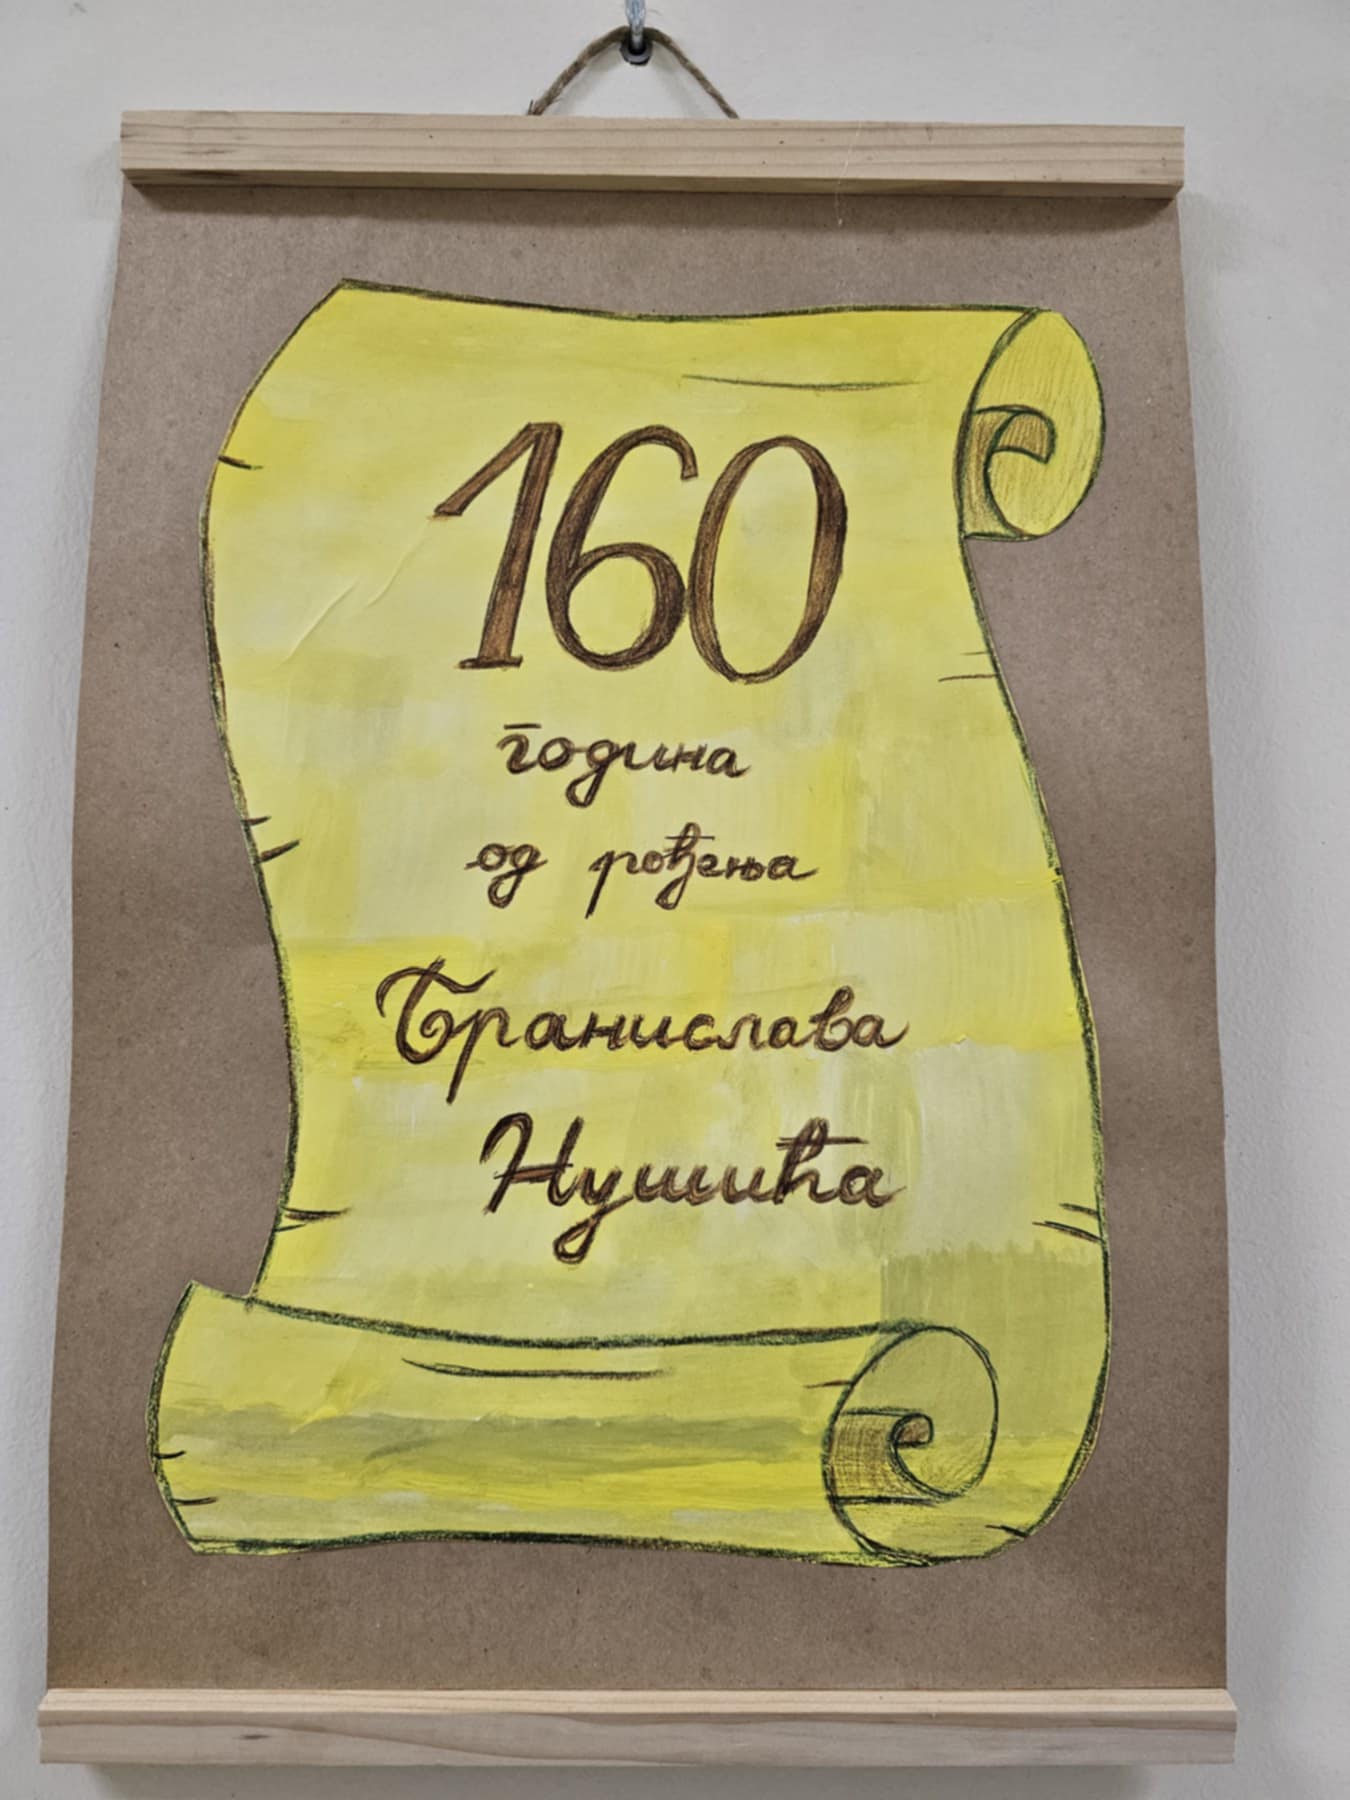 160
година
од рођења
Бранислава
Нушића